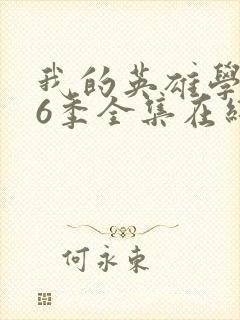 我的英雄學
6季全集在
何永東